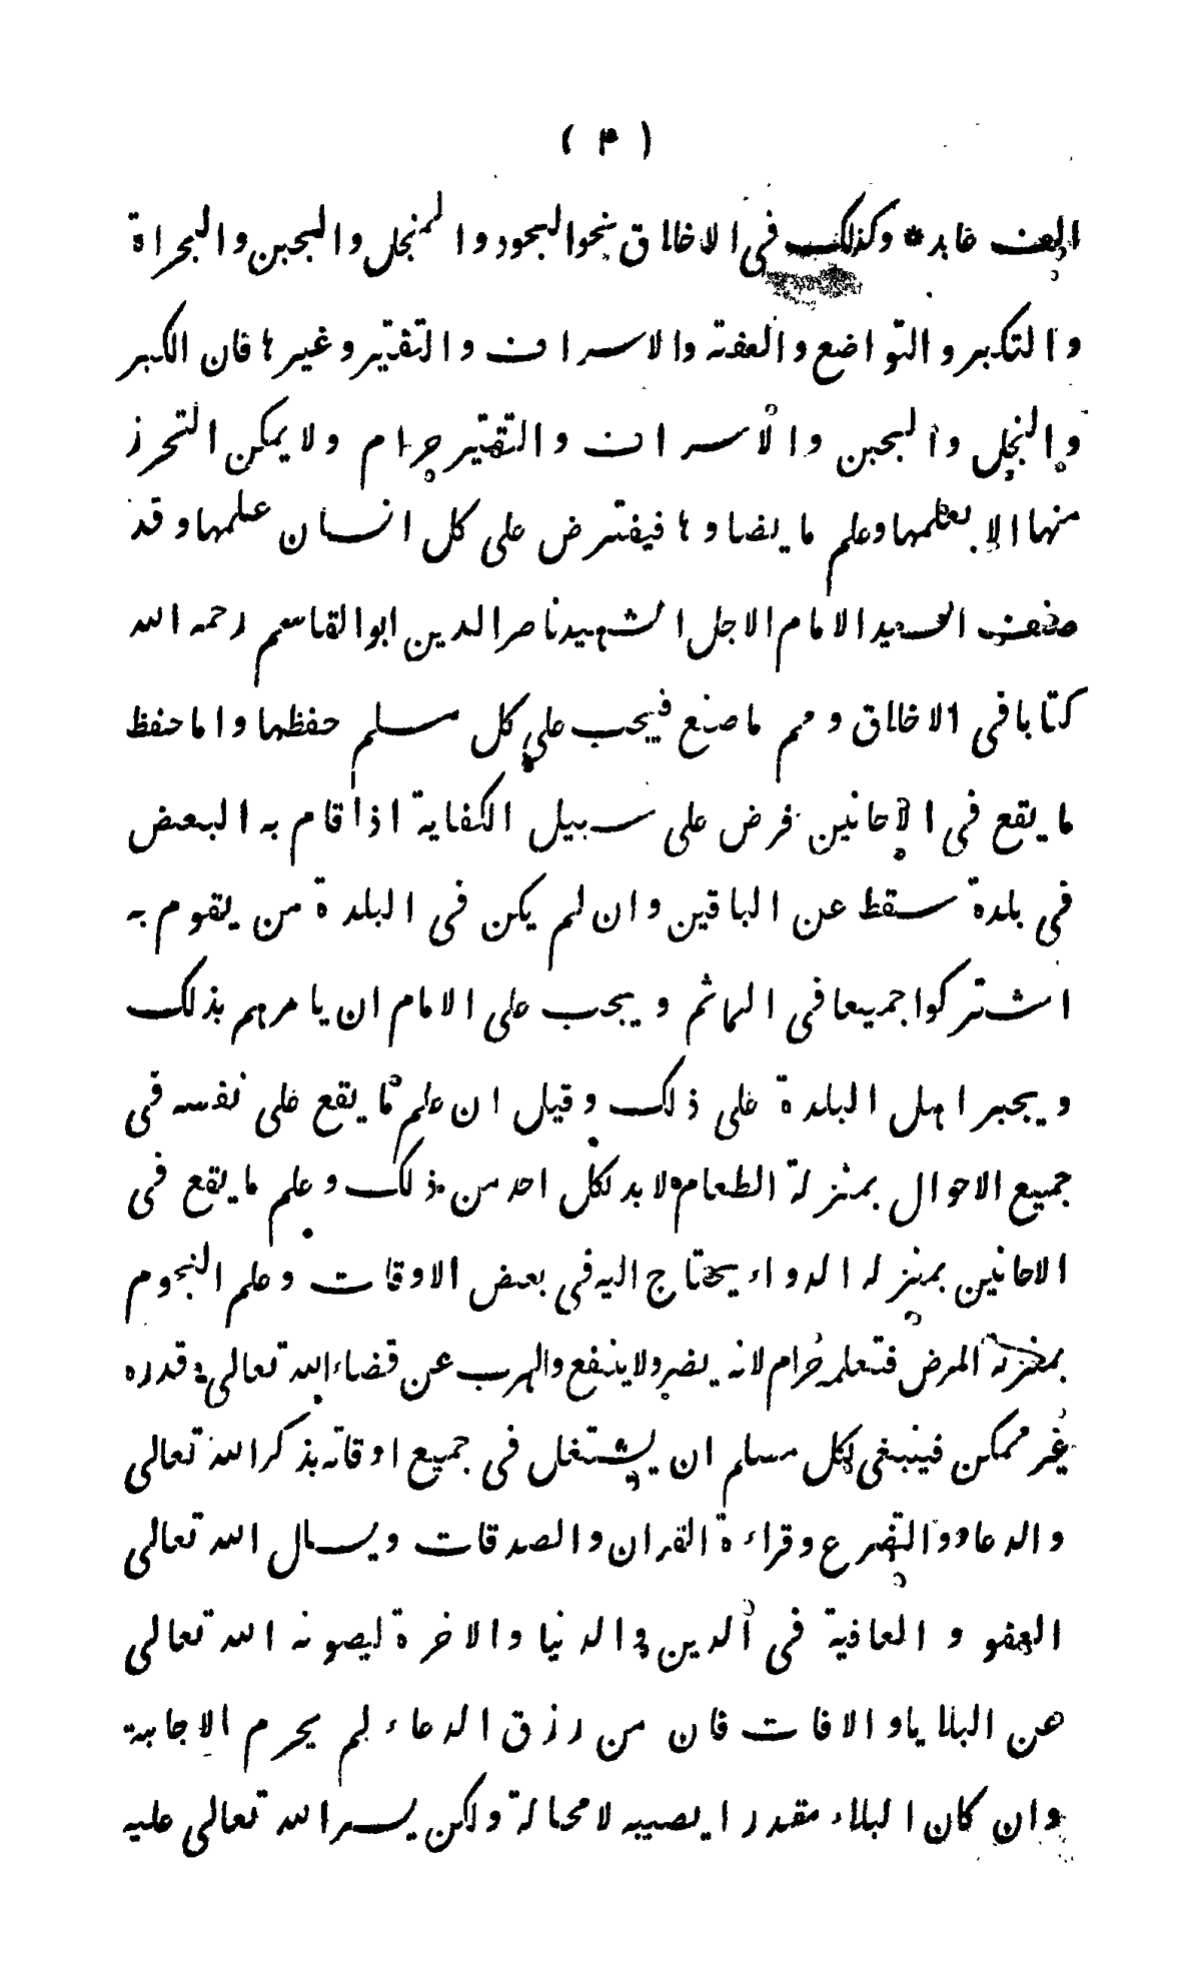 ( ۴ )
الف عابد * وكذلك فى الاخلاق نحو الجود والبخل والجبن والجراة
والتكبر والتواضع والعفة والاسراف والتقتير وغيرها فان الكبر
والبخل والجبن والاسراف والتقتير حرام ولا يمكن التحرز
منها الا بعلمها وعلم ما يضادها فيفترض على كل انسان علمها وقد
صنف السيد الامام الاجل الشهيد ناصر الدين ابو القاسم رحمه الله
كتابا فى الاخلاق ونعم ما صنع فيجب على كل مسلم حفظها واما حفظ
ما يقع فى الاحانين فرض على سبيل الكفاية اذا قام به البعض
فى بلدة سقط عن الباقين وان لم يكن فى البلدة من يقوم به
اشتركوا جميعا فى الماثم ويجب على الامام ان يامرهم بذلك
ويجبر اهل البلدة على ذلك وقيل ان علم ما يقع على نفسه فى
جميع الاحوال بمنزلة الطعام لا بد لكل احد من ذلك وعلم ما يقع فى
الاحانين بمنزله الدواء يحتاج اليه فى بعض الاوقات وعلم النجوم
بمنزلة المرض فتعلمه حرام لانه يضر ولا ينفع والهرب عن قضاء الله تعالى وقدره
غير ممكن فينبغى لكل مسلم ان يشتغل فى جميع اوقاته بذكر الله تعالى
والدعاء والتضرع وقراءة القران والصدقات ويسال الله تعالى
العفو و العافية فى الدين والدنيا والاخرة ليصونه الله تعالى
عن البلايا والافات فان من رزق الدعاء لم يحرم الاجابة
وان كان البلاء مقدرا يصيبه لا محالة ولكن يسر الله تعالى عليه